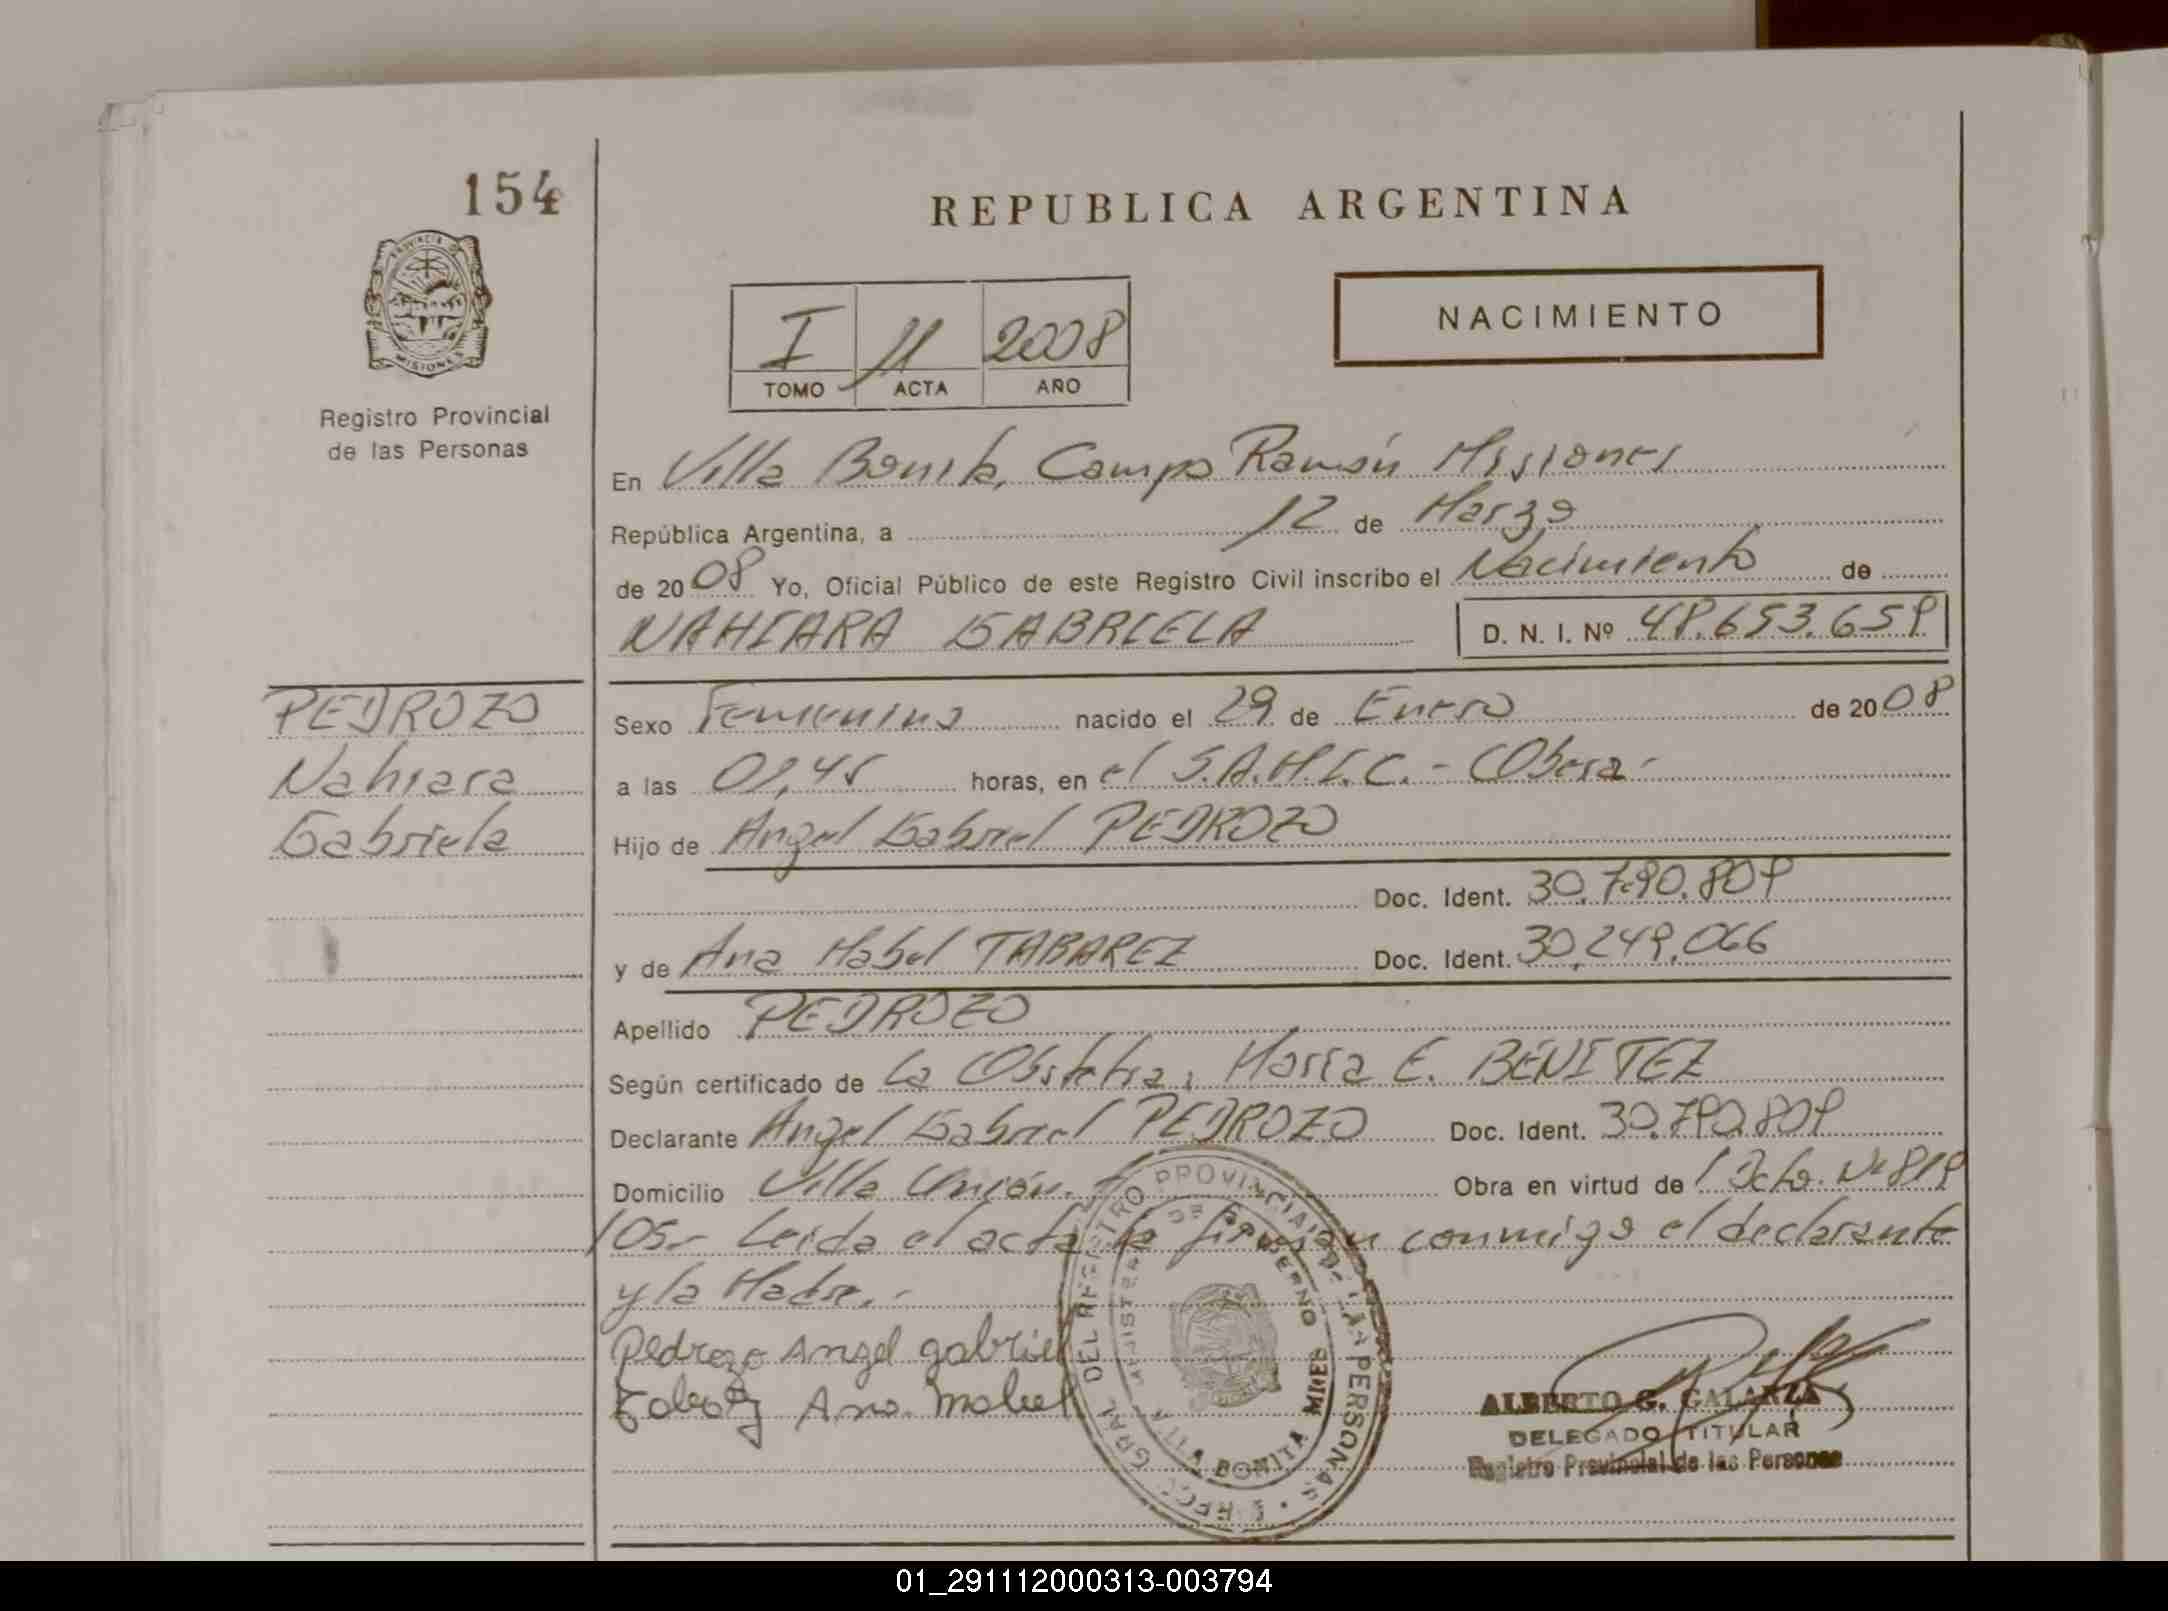 154
REPUBLICA ARGENTINA
NACIMIENTO
I 11 2008
TOMO ACTA AÑO
Registro Provincial
de las Personas
En Villa Bonita, Campo Ramón Misiones
República Argentina, a 12 de Marzo
de 2008 Yo, Oficial Público de este Registro Civil inscribo el Nacimiento de
NAHIARA GABRIELA D. N. I. Nº 48.653.659
PEDROZO
Nahiara
Gabriela
Sexo Femenino nacido el 29 de Enero de 2008
a las 01,45 horas, en el S.A.M.I.C. - Obera -
Hijo de Angel Gabriel PEDROZO
Doc. Ident. 30.790.809
y de Ana Mabel TABAREZ Doc. Ident. 30.249.066
Apellido PEDROZO
Según certificado de La Obstetra, María E. BENITEZ
Declarante Angel Gabriel PEDROZO Doc. Ident. 30.790.809
Domicilio Villa Unión. - Obra en virtud de Dcto. Nº 819
105.- Leida el acta la firman conmigo el declarante
y la Madre. -
Pedrozo Angel gabriel
Ana Mabel
REGISTRO PROVINCIAL DE LAS PERSONAS
ALBERTO G. GALARZA
DELEGADO TITULAR
Registro Provincial de las Personas
01_291112000313-003794